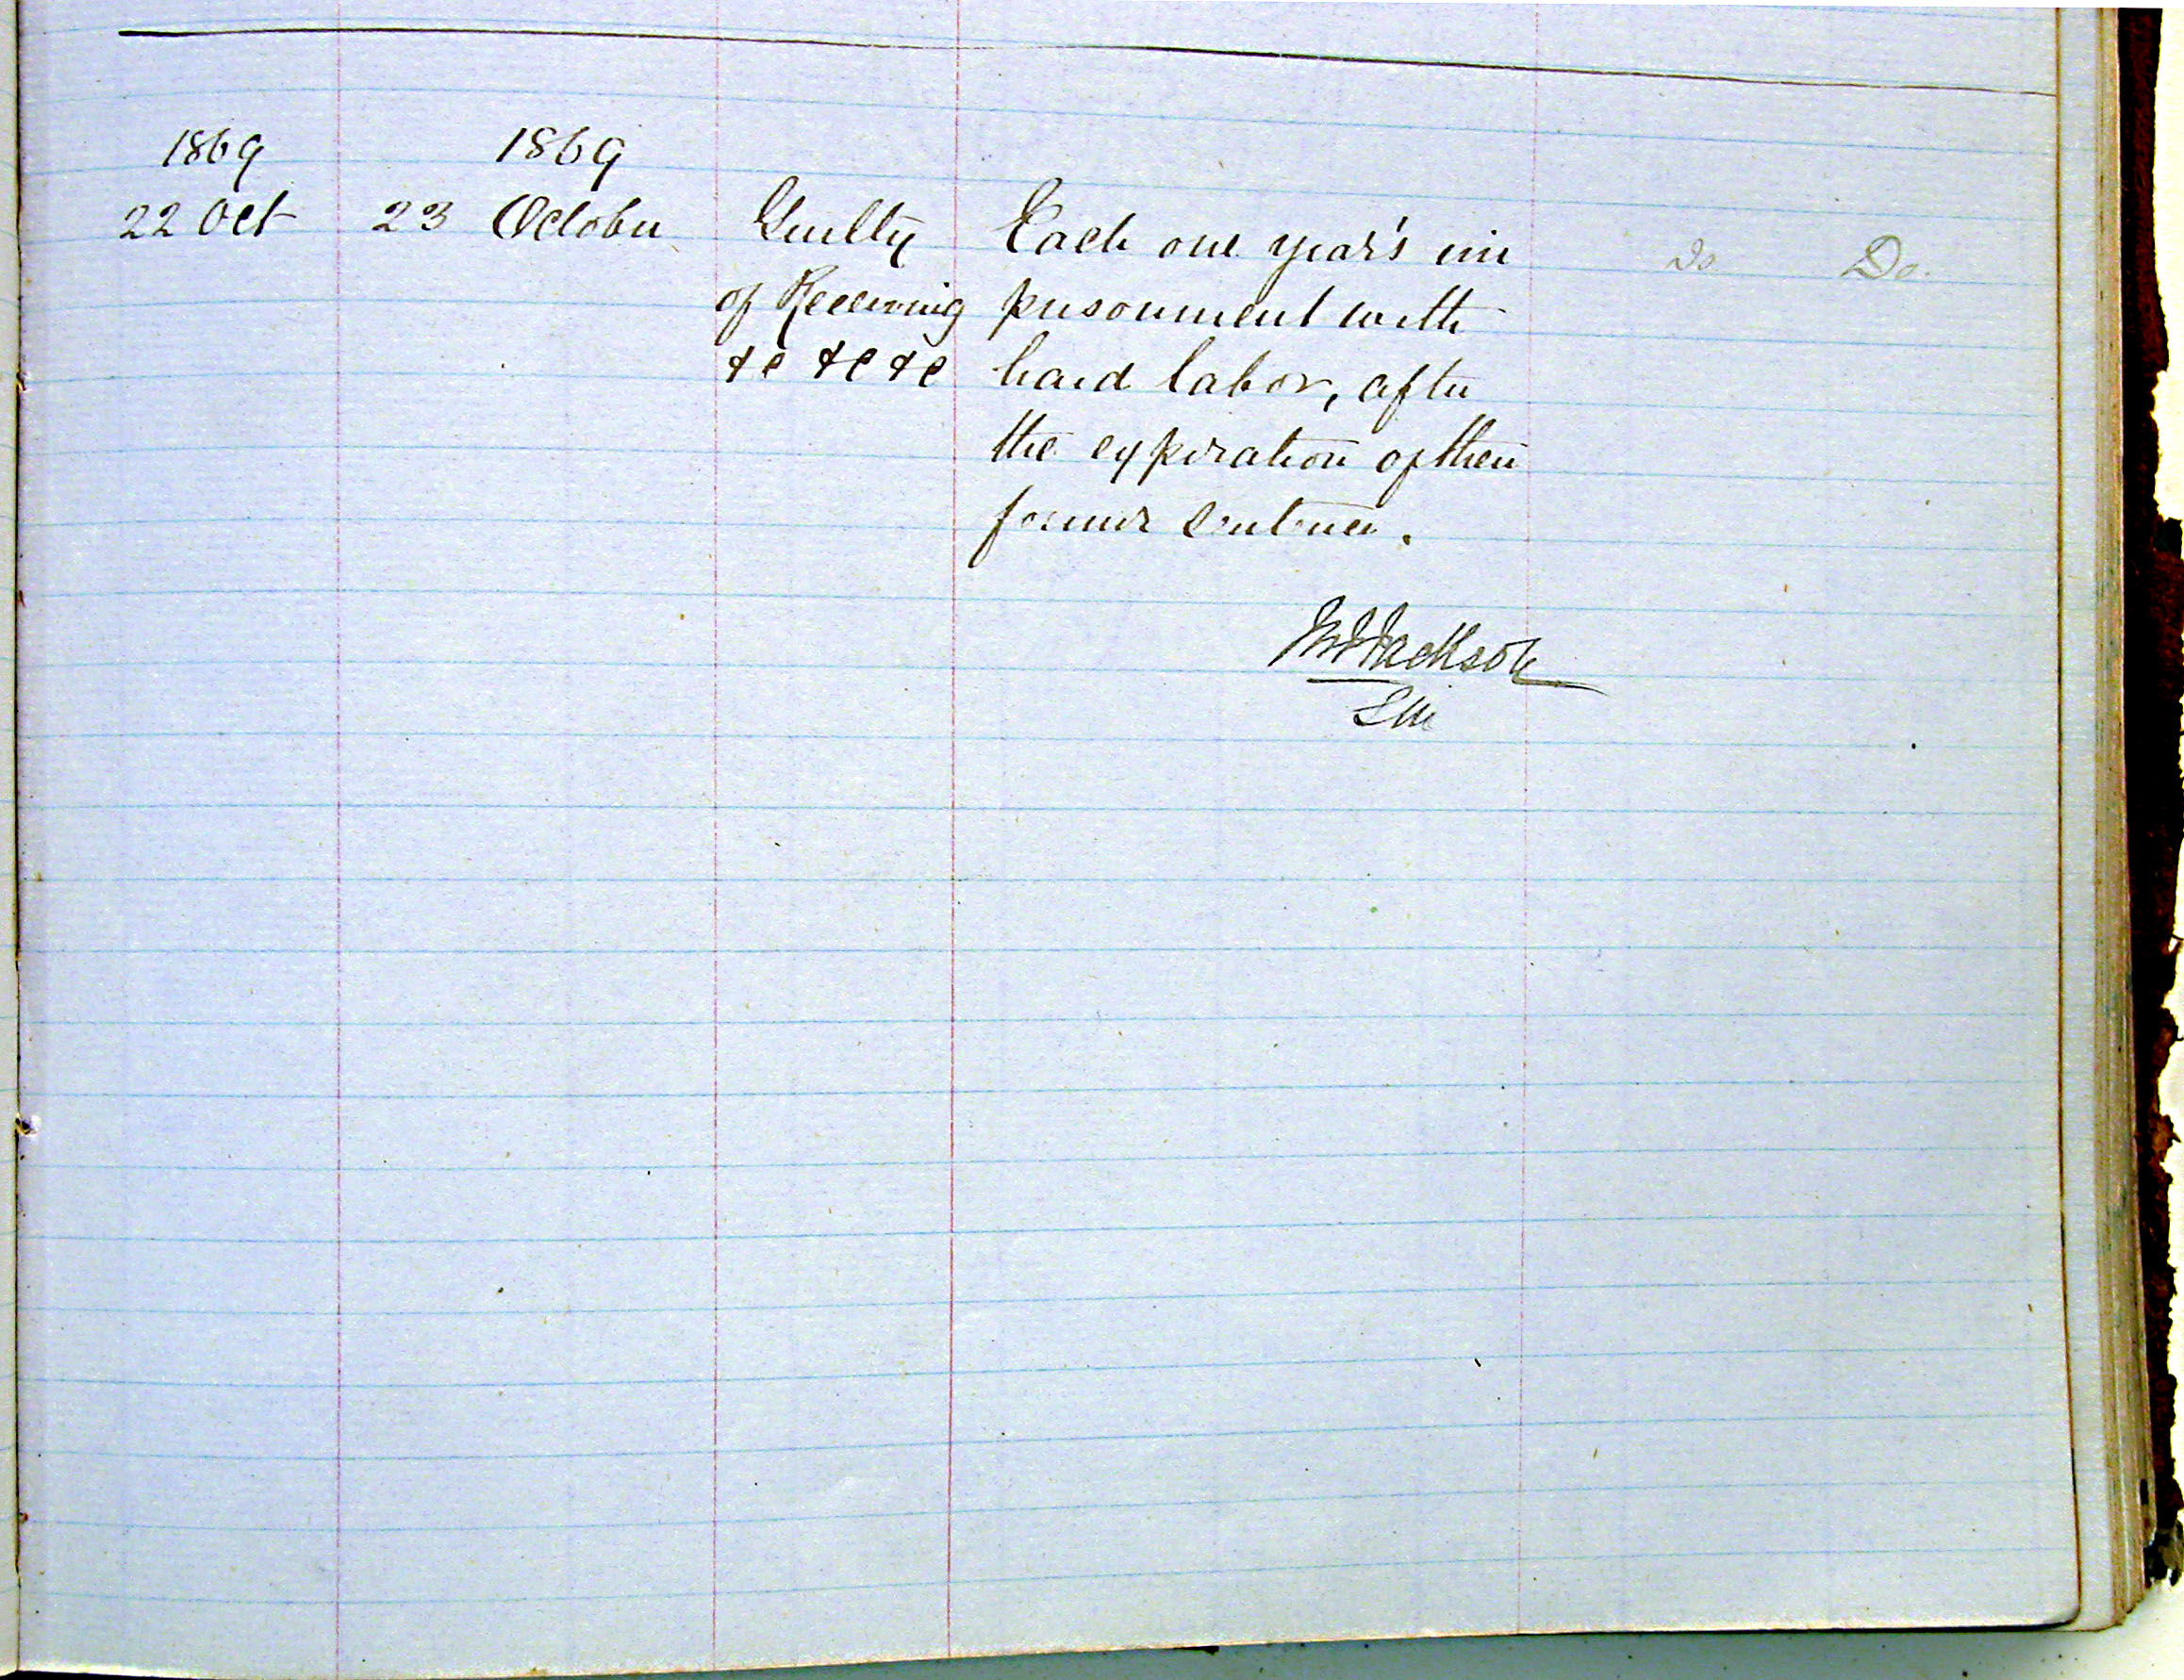 1869 1869
22 Oct 23 October Guilty Each one year's im do Do.
of Receiving prisonment with
&c &c &c hard labor, after
the expiration of their
former sentence.
Jackson